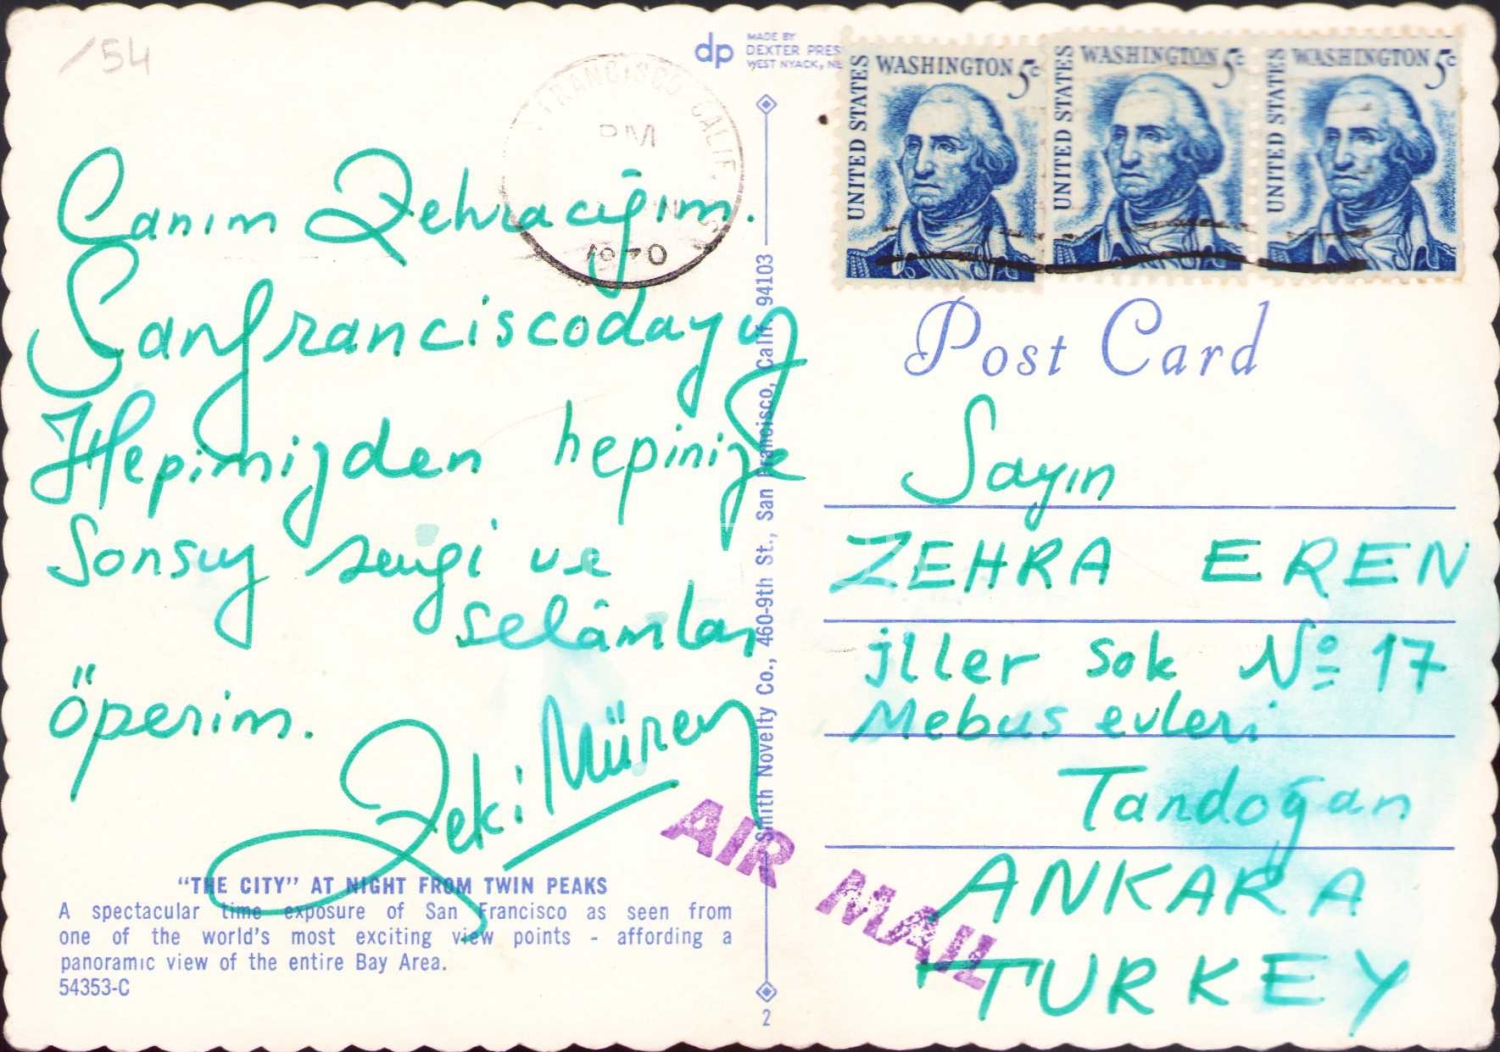 /54
Canım Zehracığım.
Sanfranciscodayız
Hepimizden hepinize
Sonsuz sevgi ve
selâmlar
öperim.
Zeki Müren
"THE CITY" AT NIGHT FROM TWIN PEAKS
A spectacular time exposure of San Francisco as seen from
one of the world's most exciting view points - affording a
panoramic view of the entire Bay Area.
54353-C
FRANCISCO CALIF.
PM
1970
dp
MADE BY
DEXTER PRES
WEST NYACK, NE
Smith Novelty Co., 460-9th St., San Francisco, Calif. 94103
2
UNITED STATES WASHINGTON 5c
UNITED STATES WASHINGTON 5c
UNITED STATES WASHINGTON 5c
Post Card
Sayın
ZEHRA EREN
İller Sok No 17
Mebus evleri
Tandoğan
ANKARA
TURKEY
AIR MAIL